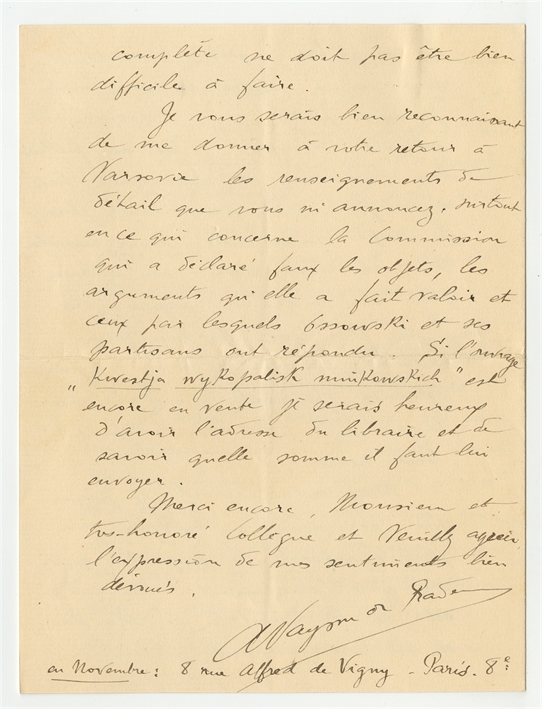 complète ne doit pas être bien
difficile à faire.
Je vous serais bien reconnaissant
de me donner à votre retour à
Varsovie les renseignements de
détail que vous m'annoncez. surtout
en ce qui concerne la Commission
qui a déclaré faux les objets, les
arguments qu'elle a fait valoir et
ceux par lesquels Ossowski et ses
partisans ont répondu. Si l'ouvrage
„Kwestja wykopalisk mnikowskich" est
encore en vente je serais heureux
d'avoir l'adresse du libraire et de
savoir quelle somme il faut lui
envoyer.
Merci encore, Monsieur et
très-honoré Collègue et Veuillez agréer
l'expression de mes sentiments bien
dévoués.
A Vayson de Prade
en Novembre: 8 rue Alfred de Vigny - Paris. 8e: